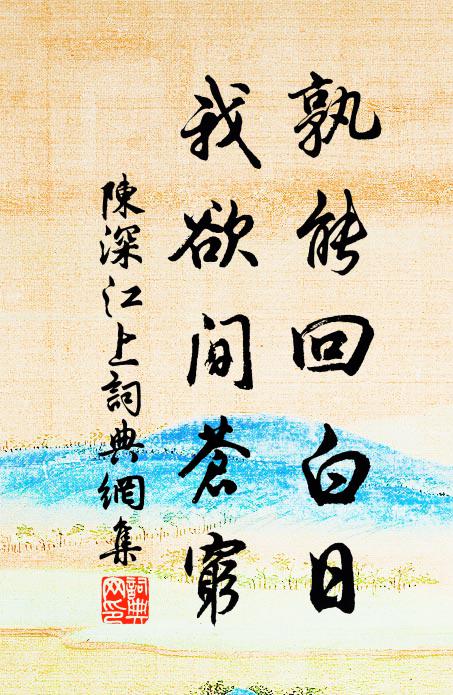 孰能回白日
我欲間蒼窮
陳深江上詞典網集
詞典網印